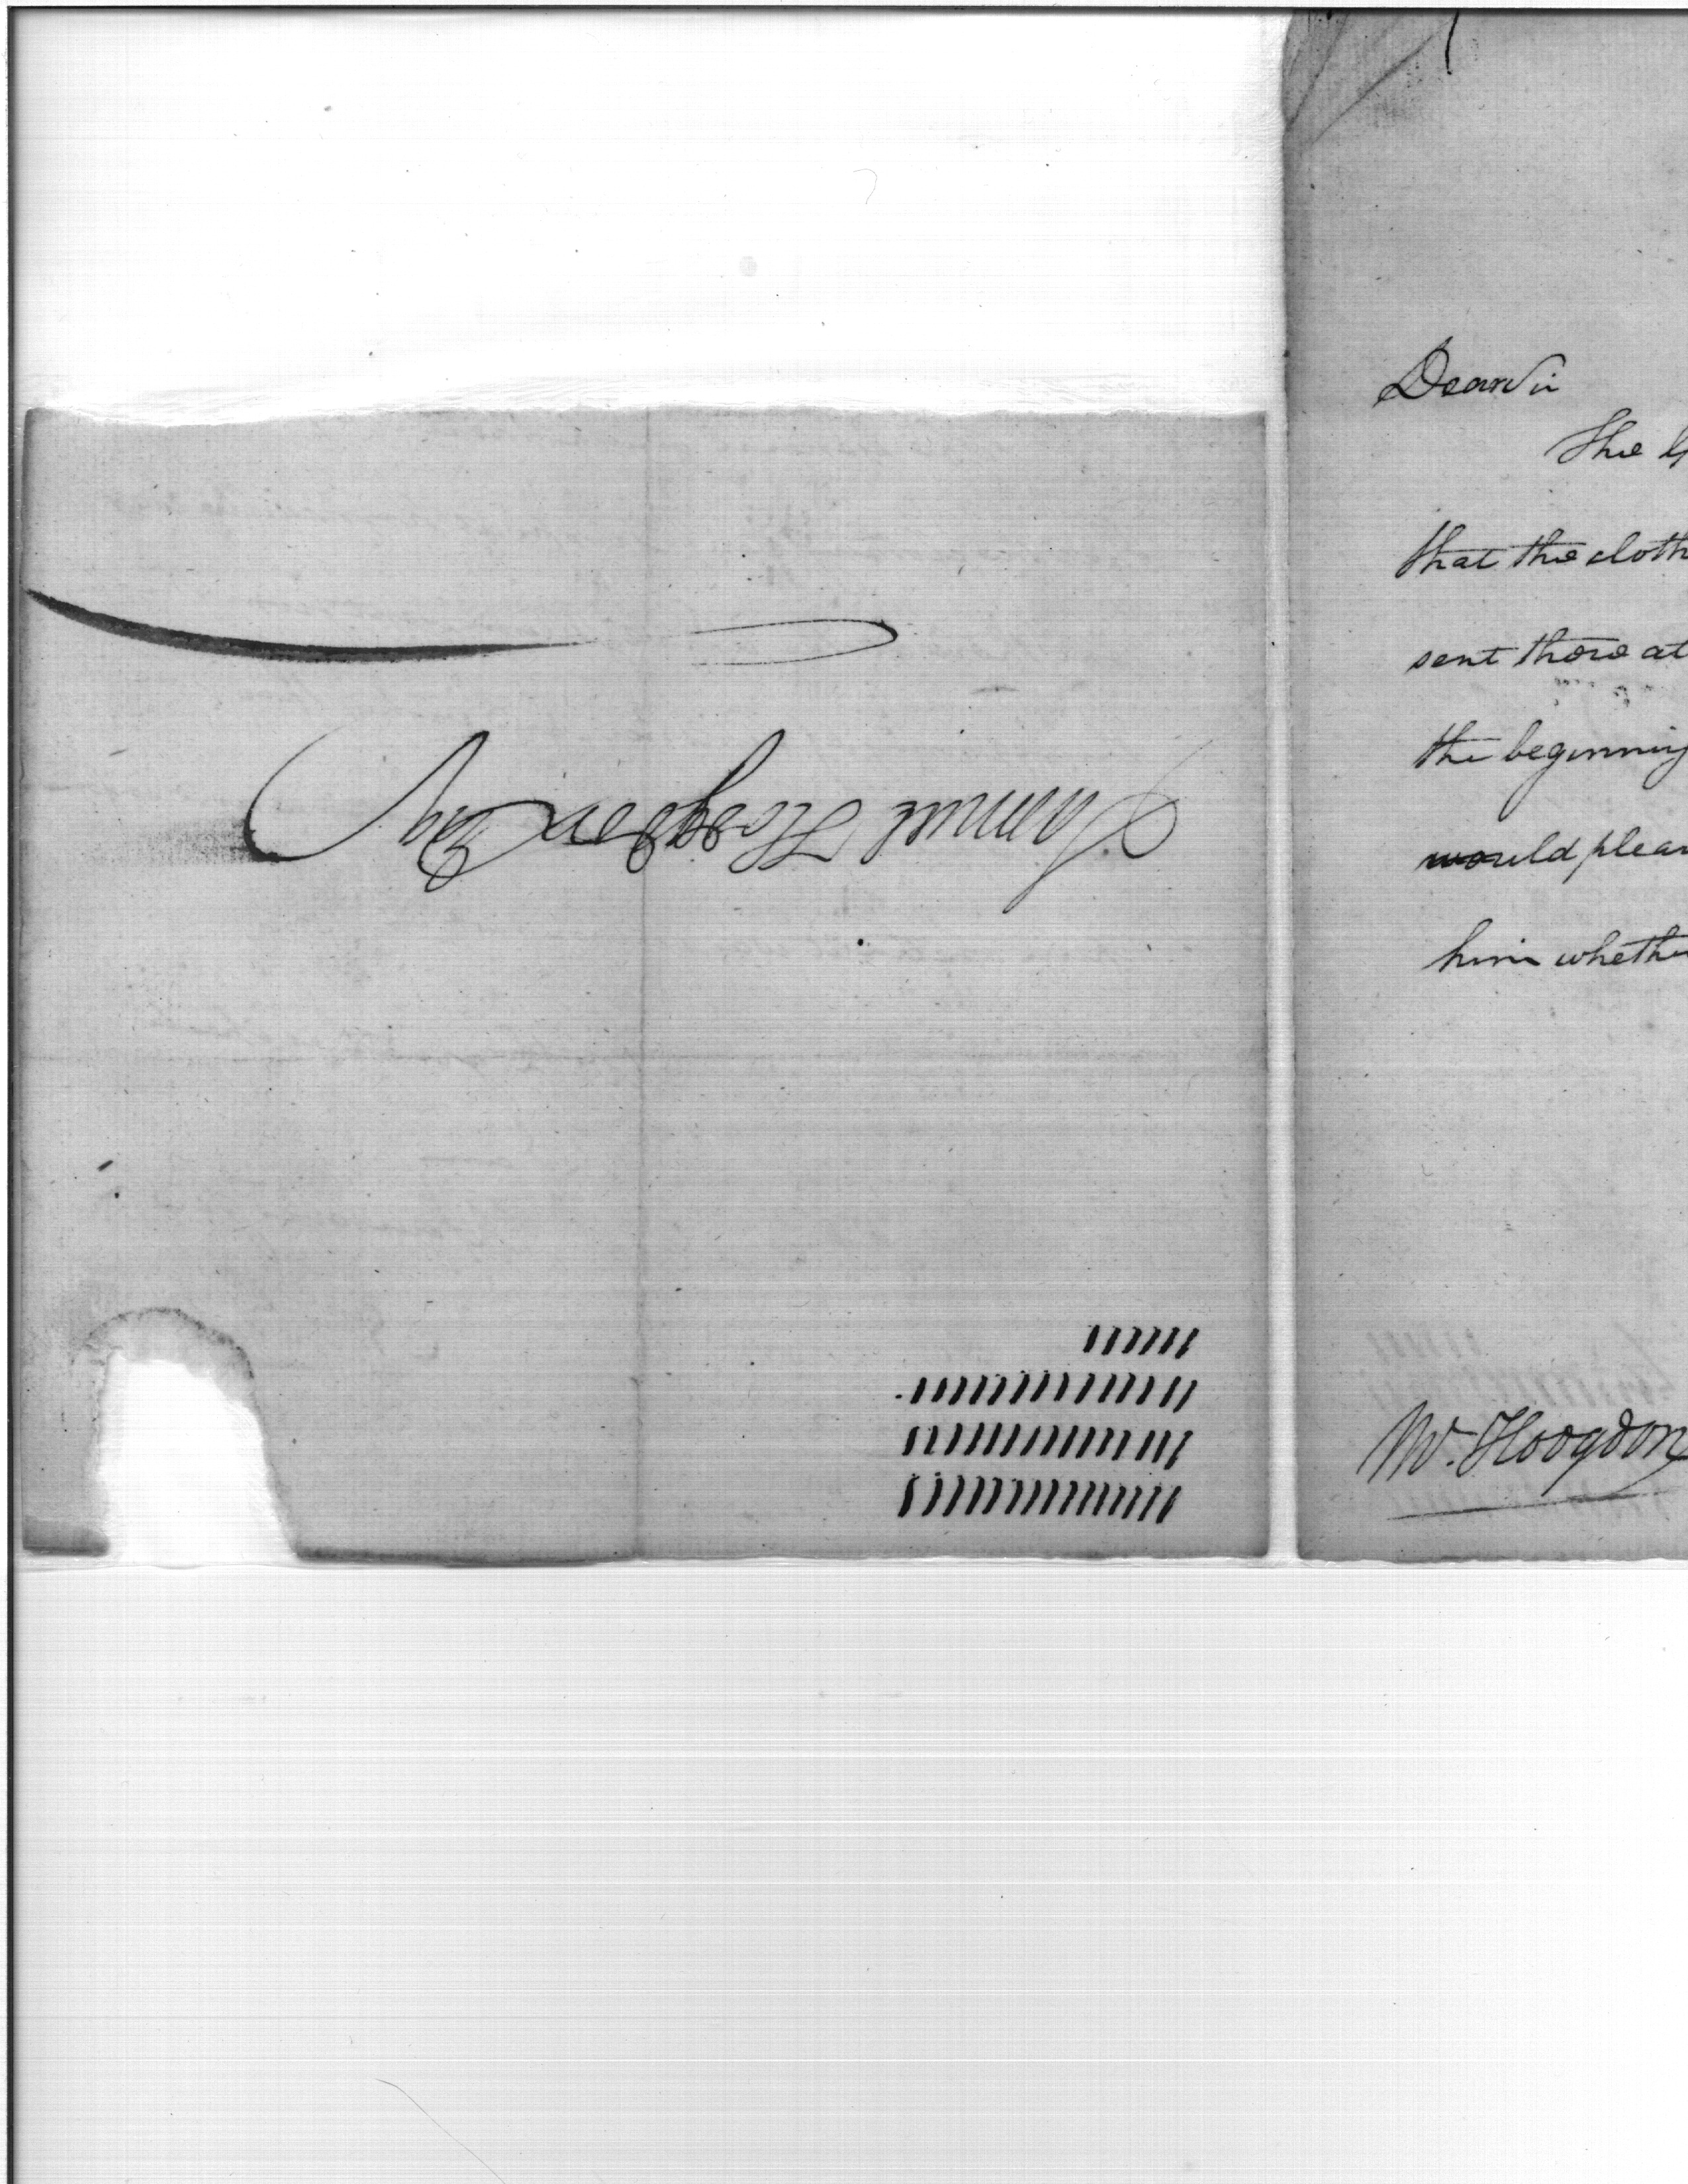 Samuel Hoogdon Esqr
Dear Sir
The
that the cloth
sent there at
the beginning
would pleas
him whethe
Mr. Hoogdon